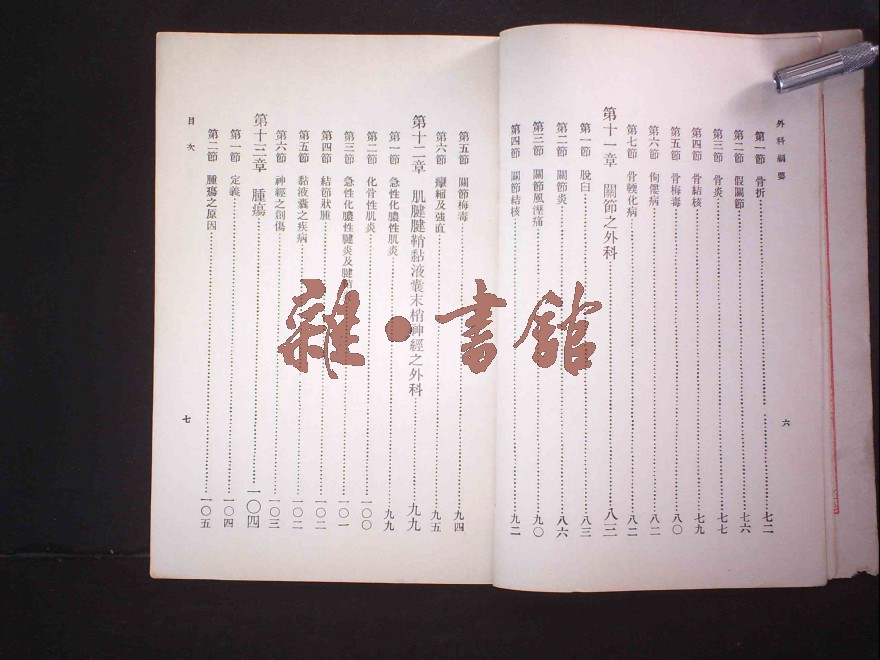 外科綱要
第一節 骨折……七二
第二節 假關節……七六
第三節 骨炎……七七
第四節 骨結核……七九
第五節 骨梅毒……八〇
第六節 佝僂病……八二
第七節 骨輭化病……八二
第十一章 關節之外科……八三
第一節 脫臼……八三
第二節 關節炎……八六
第三節 關節風溼痛……九〇
第四節 關節結核……九二
六
第五節 關節梅毒……九四
第六節 攣縮及強直……九五
第十二章 肌腱腱鞘黏液囊末梢神經之外科……九九
第一節 急性化膿性肌炎……九九
第二節 化骨性肌炎……一〇〇
第三節 急性化膿性腱炎及腱……一〇一
第四節 結節狀腫……一〇二
第五節 黏液囊之疾病……一〇二
第六節 神經之創傷……一〇三
第十三章 腫瘍……一〇四
第一節 定義……一〇四
第二節 腫瘍之原因……一〇五
目次
七
雜·書館